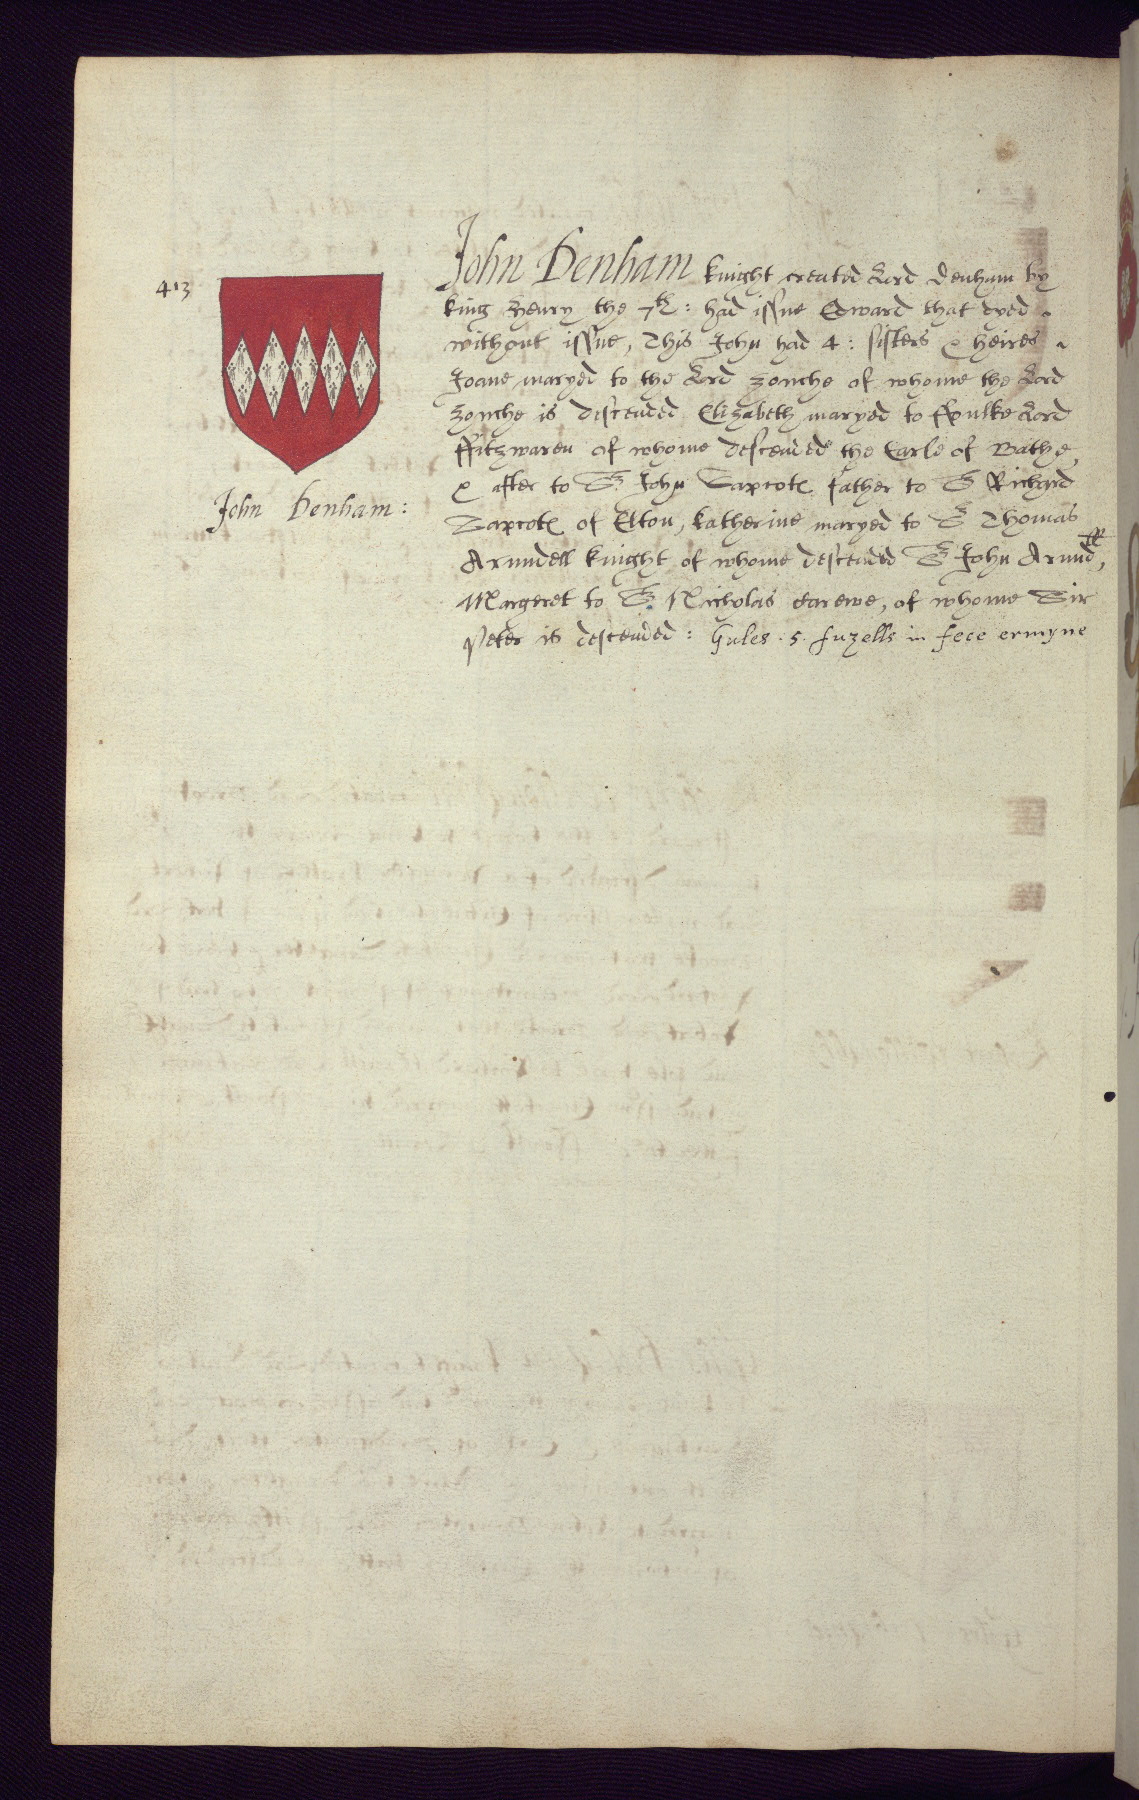 413
John Denham knight created Lord Denham by
king Henry the 7th: had issue Edward that dyed
without issue, This John had 4: sisters & heires
Joane maryed to the Lord Zouche of whome the Lord
Zouche is descended Elizabeth maryed to ffoulke Lord
ffitzwaren of whome descended the Earle of Bathe,
& after to Sr John Sapcote, father to Sr Richard
Sapcote of Elton, katherine maryed to Sr Thomas
Arundell knight of whome descended Sr John Arundell,
Margeret to Sr Nicholas Carewe, of whome Sir
Peter is descended: Gules .5. fuzells in fece ermyne
John Denham: